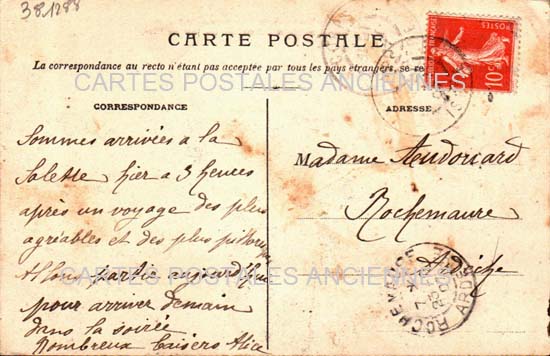 381288
CARTE POSTALE
La correspondance au recto n'étant pas acceptée par tous les pays étrangers, se re
CARTES POSTALES ANCIENNES
CORRESPONDANCE
ADRESSE
10c
Sommes arrivées a la
Salette hier a 3 heures
après un voyage des plus
agréables et des plus
Allons partir aujourd'hui
pour arriver demain
dans la soirée
Nombreux baisers Alice
Madame Audouard
Rochemaure
Ardèche
CARTES POSTALES ANCIENNES
ROCHEMAURE
ARD